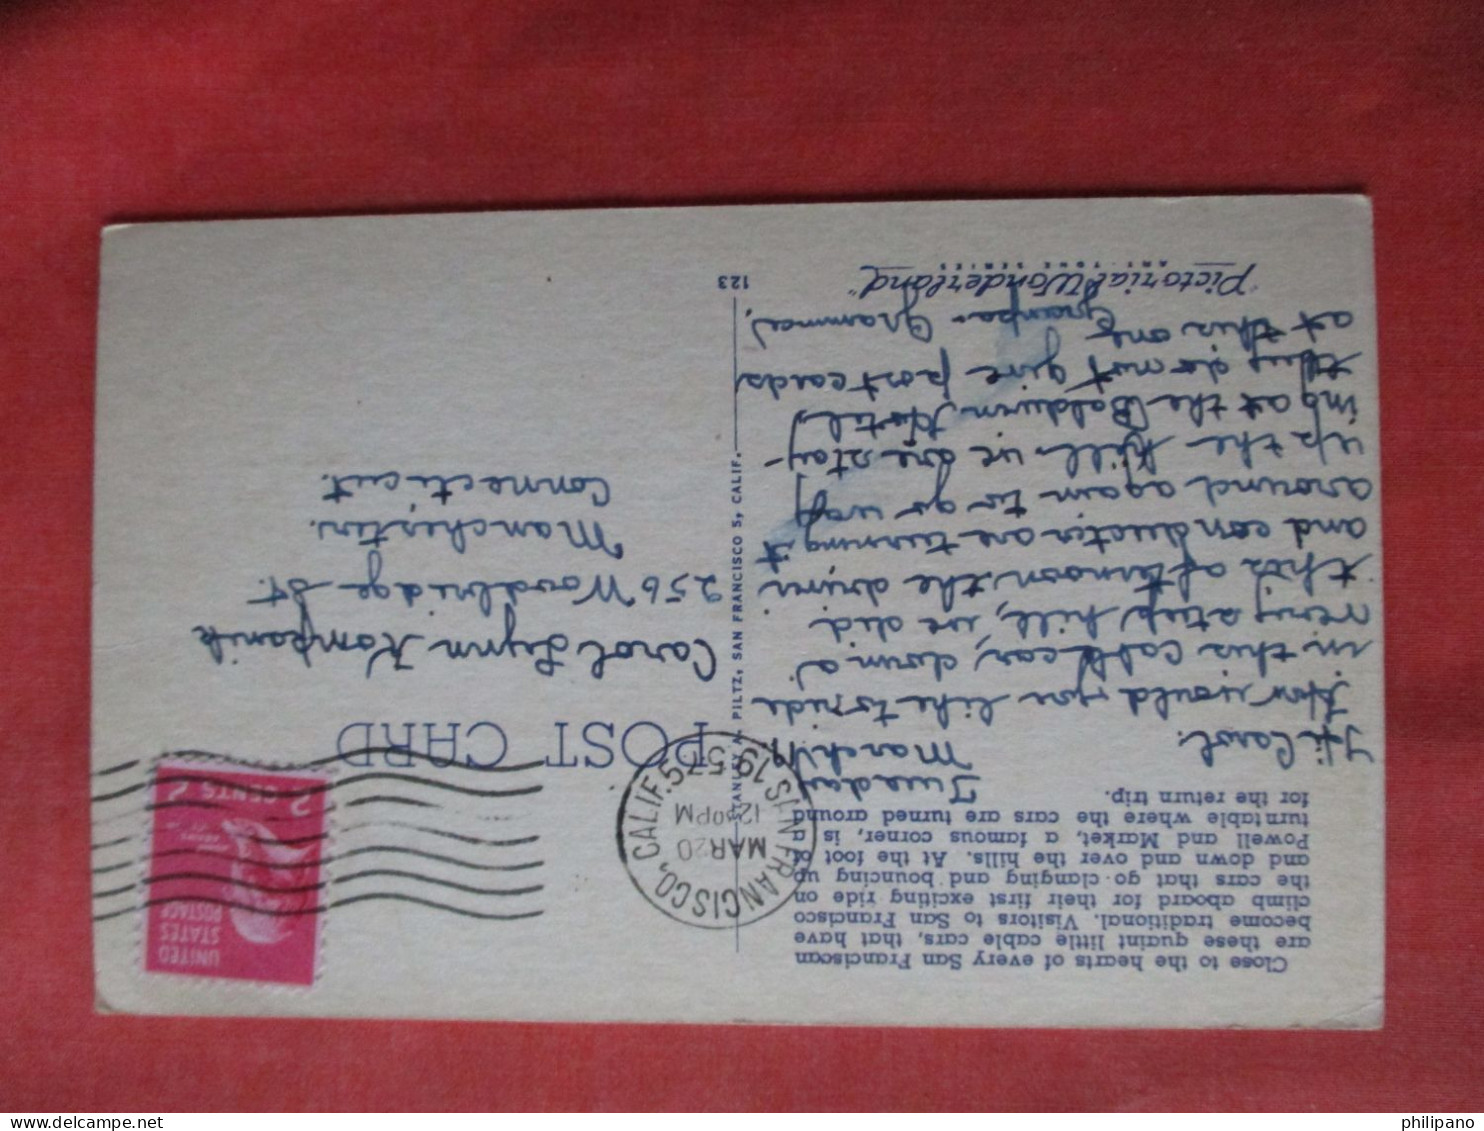 Close to the hearts of every San Franciscan
are these quaint little cable cars, that have
become traditional. Visitors to San Francisco
climb aboard for their first exciting ride on
the cars that go clanging and bouncing up
and down and over the hills. At the foot of
Powell and Market, a famous corner, is a
turntable where the cars are turned around
for the return trip.
Tuesday
March 19,
Hi Carol.
How would you like to ride
in this cable car, down a
very steep hill, we did
this afternoon the driver
and conductor are turning it
around again to go way
up the hill. we are stay-
ing at the Baldwin Hotel,
they do not give postcards
at this one
Grampa - Gramma,
"Pictorial Wonderland"
ART-TONE SERIES
123
STANLEY A. PILTZ, SAN FRANCISCO 5, CALIF.
POST CARD
SAN FRANCISCO, CALIF. 5
MAR 20
12 30 PM
1957
UNITED
STATES
POSTAGE
2 CENTS 2
Carol Lynn Kompanik
256 Woodbridge St.
Manchester.
Connecticut.
philipano